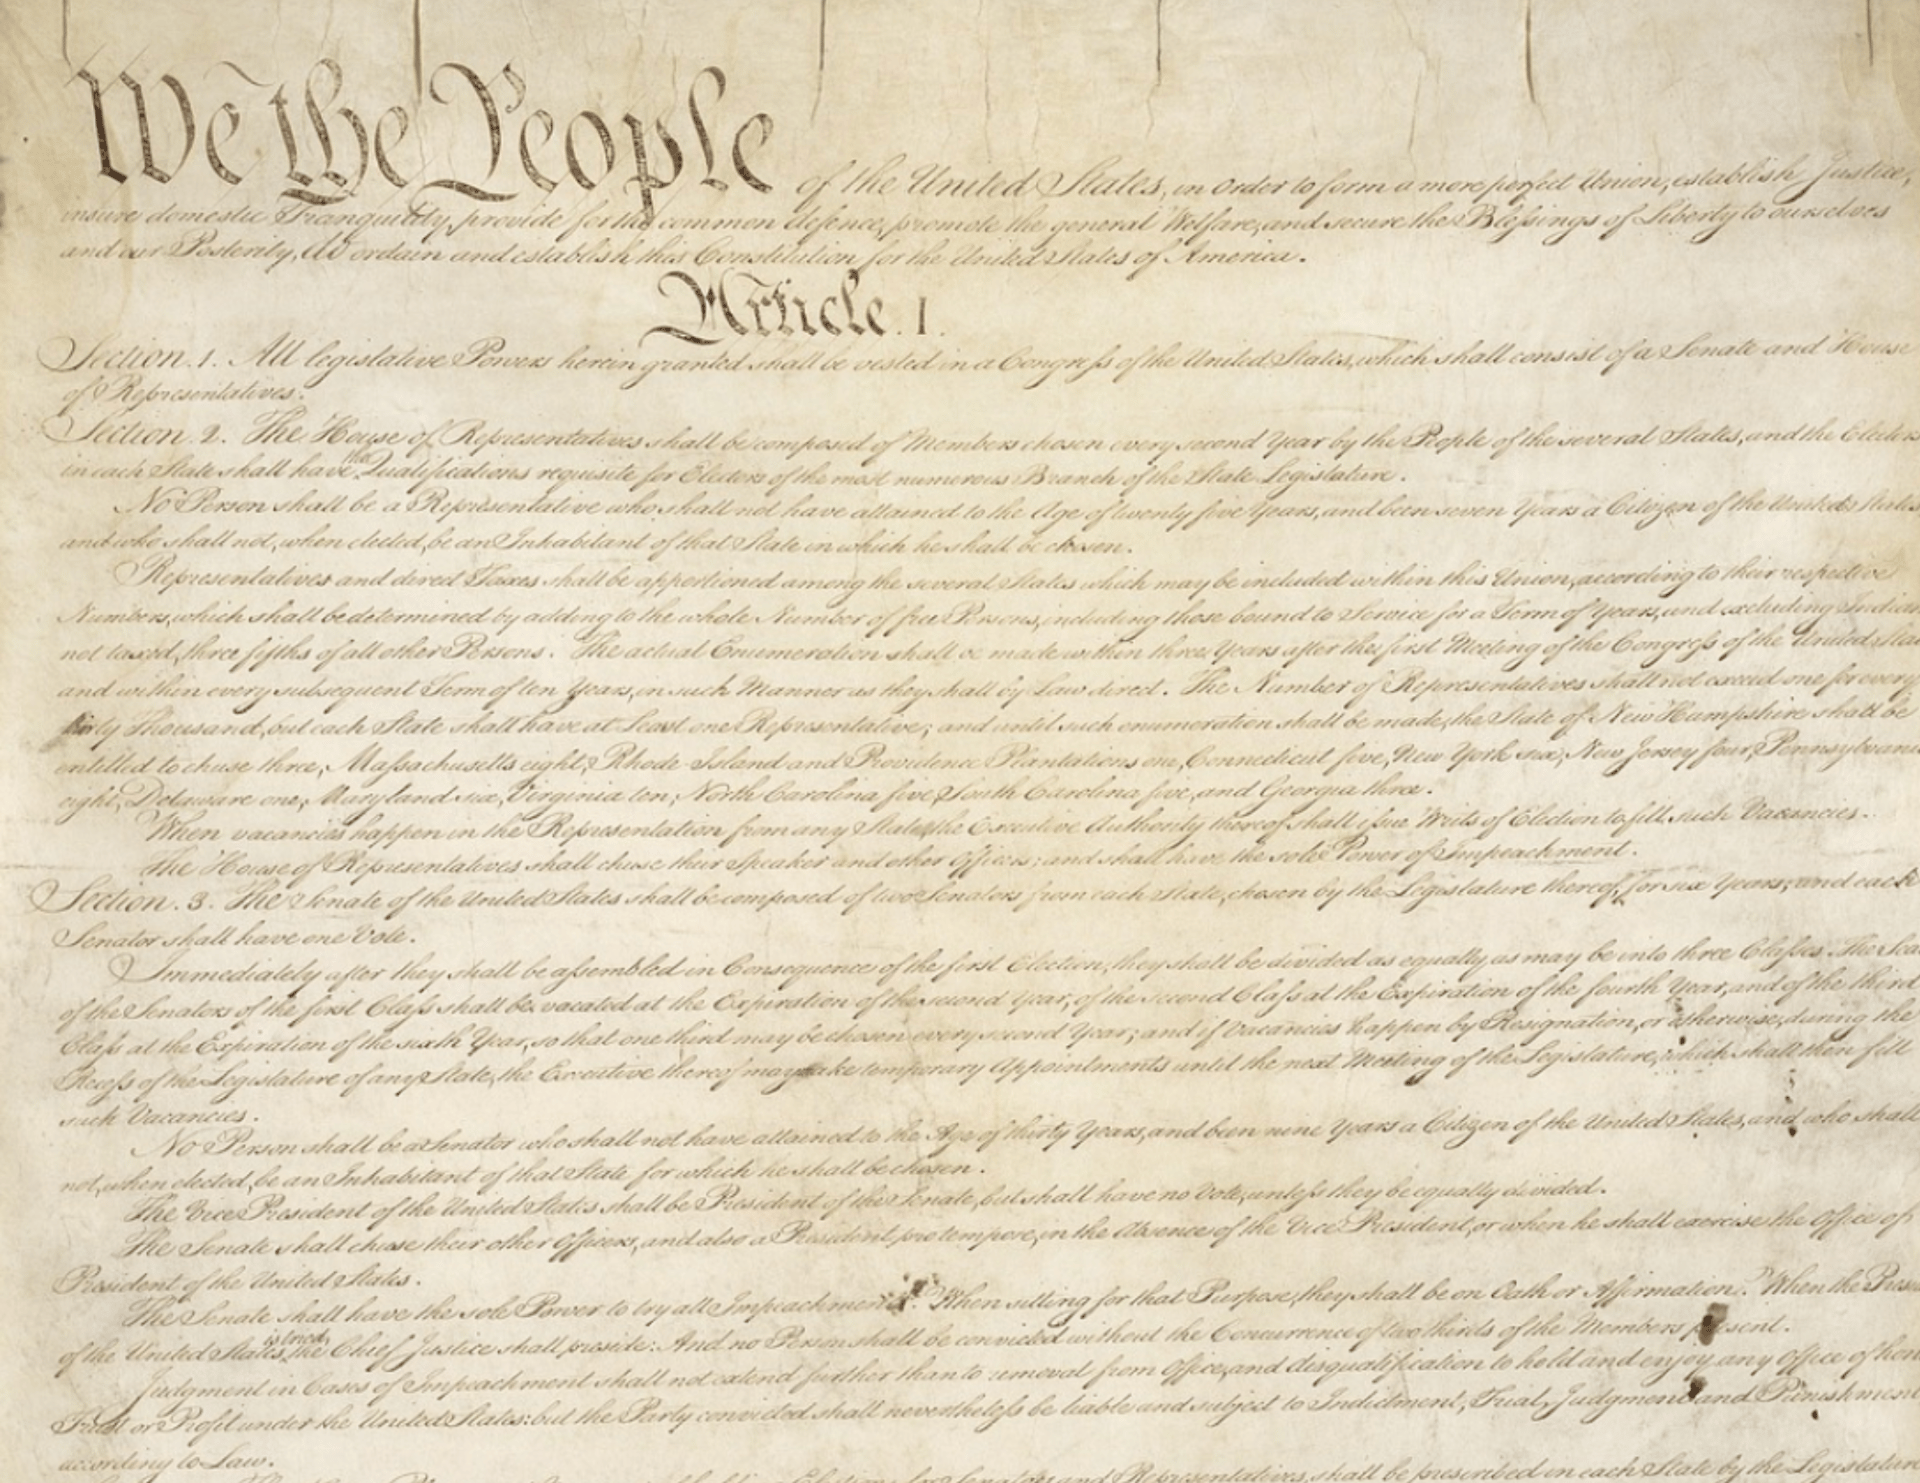 We the People of the United States, in Order to form a more perfect Union, establish Justice,
insure domestic Tranquility, provide for the common defence, promote the general Welfare, and secure the Blessings of Liberty to ourselves
and our Posterity, do ordain and establish this Constitution for the United States of America.
Article. I.
Section. 1. All legislative Powers herein granted shall be vested in a Congress of the United States, which shall consist of a Senate and House
of Representatives.
Section. 2. The House of Representatives shall be composed of Members chosen every second Year by the People of the several States, and the Electors
in each State shall have the Qualifications requisite for Electors of the most numerous Branch of the State Legislature.
No Person shall be a Representative who shall not have attained to the Age of twenty five Years, and been seven Years a Citizen of the United States
and who shall not, when elected, be an Inhabitant of that State in which he shall be chosen.
Representatives and direct Taxes shall be apportioned among the several States which may be included within this Union, according to their respective
Numbers, which shall be determined by adding to the whole Number of free Persons, including those bound to Service for a Term of Years, and excluding Indian
not taxed, three fifths of all other Persons. The actual Enumeration shall be made within three Years after the first Meeting of the Congress of the United Sta
and within every subsequent Term of ten Years, in such Manner as they shall by Law direct. The Number of Representatives shall not exceed one for every
thirty Thousand, but each State shall have at Least one Representative; and until such enumeration shall be made, the State of New Hampshire shall be
entitled to chuse three, Massachusetts eight, Rhode-Island and Providence Plantations one, Connecticut five, New-York six, New Jersey four, Pennsylvani
eight, Delaware one, Maryland six, Virginia ten, North Carolina five, South Carolina five, and Georgia three.
When vacancies happen in the Representation from any State, the Executive Authority thereof shall issue Writs of Election to fill such Vacancies.
The House of Representatives shall chuse their Speaker and other Officers; and shall have the sole Power of Impeachment.
Section. 3. The Senate of the United States shall be composed of two Senators from each State, chosen by the Legislature thereof, for six Years; and each
Senator shall have one Vote.
Immediately after they shall be assembled in Consequence of the first Election, they shall be divided as equally as may be into three Classes. The Sea
of the Senators of the first Class shall be vacated at the Expiration of the second Year, of the second Class at the Expiration of the fourth Year, and of the third
Class at the Expiration of the sixth Year, so that one third may be chosen every second Year; and if Vacancies happen by Resignation, or otherwise, during the
Recess of the Legislature of any State, the Executive thereof may make temporary Appointments until the next Meeting of the Legislature, which shall then fill
such Vacancies.
No Person shall be a Senator who shall not have attained to the Age of thirty Years, and been nine Years a Citizen of the United States, and who shall
not, when elected, be an Inhabitant of that State for which he shall be chosen.
The Vice President of the United States shall be President of the Senate, but shall have no Vote, unless they be equally divided.
The Senate shall chuse their other Officers, and also a President pro tempore, in the Absence of the Vice President, or when he shall exercise the Office of
President of the United States.
The Senate shall have the sole Power to try all Impeachments. When sitting for that Purpose, they shall be on Oath or Affirmation. When the Presi
of the United States is tried, the Chief Justice shall preside: And no Person shall be convicted without the Concurrence of two thirds of the Members present.
Judgment in Cases of Impeachment shall not extend further than to removal from Office, and disqualification to hold and enjoy any Office of hon
Trust or Profit under the United States: but the Party convicted shall nevertheless be liable and subject to Indictment, Trial, Judgment and Punishment
according to Law.
for Senators and Representatives, shall be prescribed in each State by the Legislature